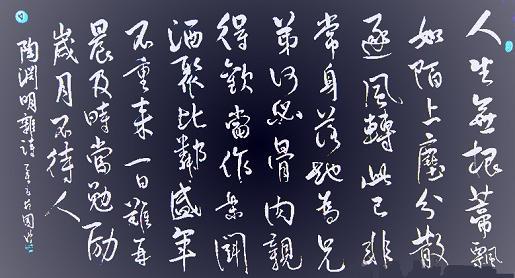 人生無根蒂飄
如陌上塵分散
逐風轉此已非
常身落地為兄
弟何必骨肉親
得歡當作樂鬥
酒聚比鄰盛年
不重來一日難再
晨及時當勉励
歲月不待人
陶淵明雜詩